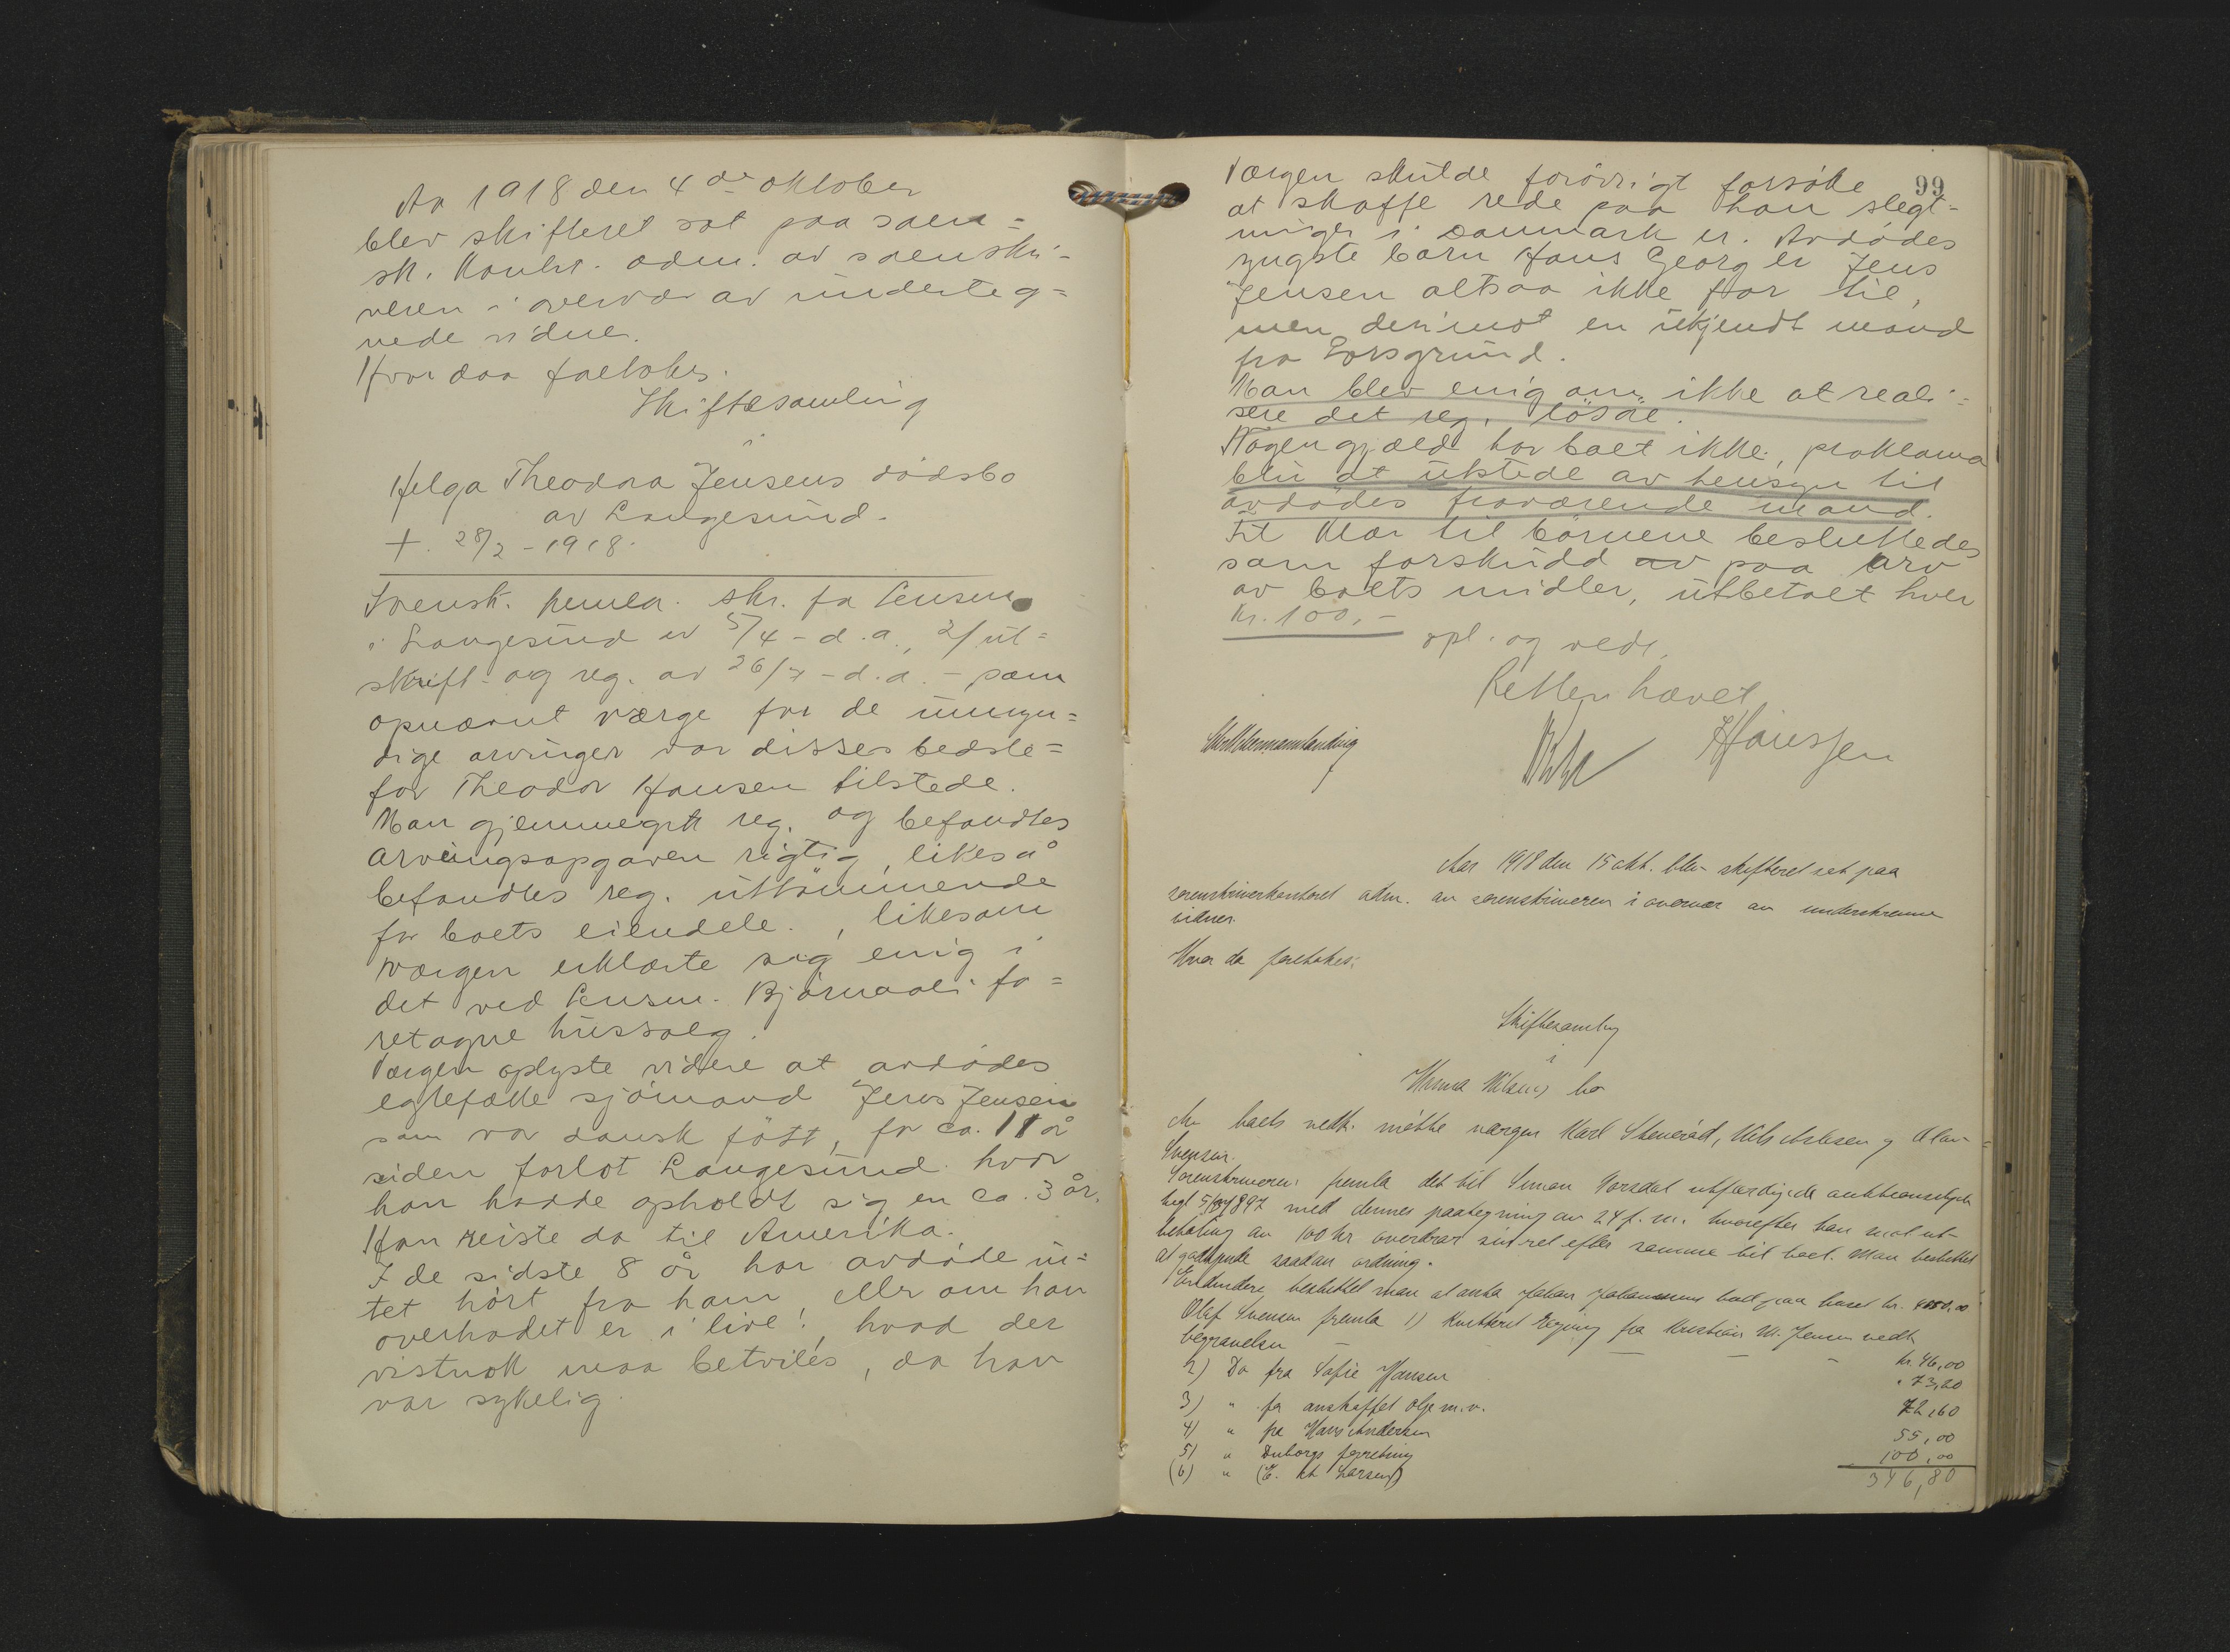 Ar 1918 den 4de oktober
blev skifteret sat paa soren=
sk. kontor. adm. av sorenskri-
veren i overvær av underteg=
nede vidne.
Hvor da foretokes.
Skiftesamling
i
Helga Theodora Jensens dødsbo
av Langesund.
+. 28/2 - 1918.
Sorensk. fremla. skr. fra lensm.
i Langesund av 5/4 - d.a., 2/ ut=
skrift og reg. av 26/7 - d.a. - som
opnævnt værge for de umyn=
dige arvinger var disses bedste=
far Theodor Hansen tilstede.
Man gjennemgik reg. og befandtes
arvingsopgaven rigtig, likeså
befandtes reg. uttömmende
for boets eiendele., likesom
værgen erklærte sig enig i
det ved lensm. Bjørnaali fo=
retagne hussalg.
Værgen oplyste videre at avdødes
egtefælle sjömand Jens Jensen
som var dansk født, for ca. 11 år
siden forlot Langesund hvor
han hadde opholdt sig en ca. 3 år.
Han reiste da til Amerika.
I de sidste 8 år har avdøde in=
tet hört fra ham eller om han
overhodet er i live!, hvad der
vistnok maa betviles, da han
var sykelig.
99
Værgen skulde forövrigt forsöke
at skaffe rede paa hans slegt-
ninger i Danmark er. Avdødes
yngste barn Hans Georg er Jens
Jensen altsaa ikke far til,
men derimot en ukjendt mand
fra Porsgrund.
Man blev enig om ikke at reali=
sere det reg. lösöre.
Nogen gjæld har boet ikke, proklama
blir at utstede av hensyn til
avdödes fraværende mand.
Til klær til börnene besluttedes
som forskudd av paa arv
av boets midler, utbetalt hver
kr. 100,-
opl. og vedt.
Retten hævet
HHanssen
Aar 1918 den 15 okt. blev skifteret sat paa
sorenskriverkontoret adm. av sorenskriveren i overvær av underskrevne
vidner.
Hvor da foretokes:
Skiftesamling
i
bo
boets vedk. møtteværgen Karl Stenerød, Nils og Olav
Svensen.
Sorenskriveren fremla det til Simon utfærdigede auktionsskjøte
tingl. 1897 med dennes paategning av 24 f.m. hvorefter han mot ut-
betaling av 100 kr overdrar sin ret efter samme til boet. Man besluttet
at godkjende saadan ordning.
Endvidere besluttet man at anta Johan bud paa huset kr.
Olaf Svensen fremla 1) Kvittert regning fra Kristian M. Jensen vedk
begravelsen kr. 46,00
2) Do fra Sofie Hansen " 73,20
3) " for anskaffet olje m.v. 72,60
4) " fra Hans Andersen 55,00
5) " forretning 100,00
(6) " (E. Larsen)
346,80